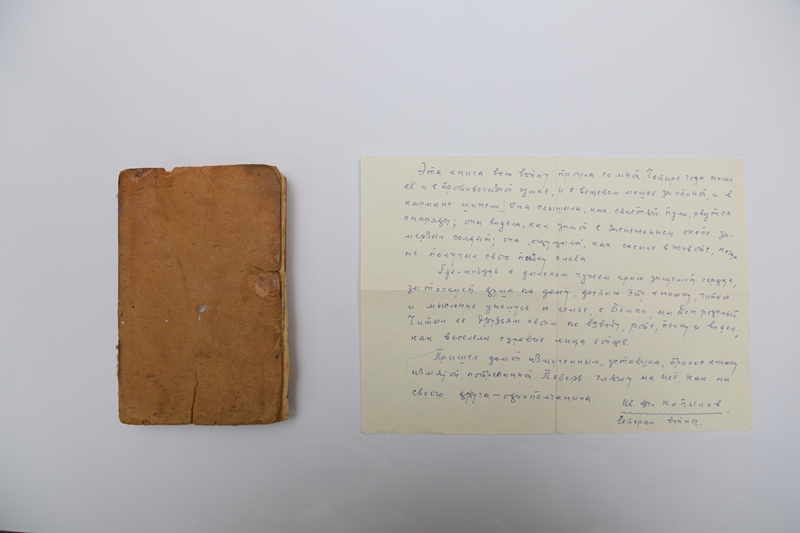 Эта книга всю войну прошла со мной. Четыре года носил
её и в противогазной сумке, и в вещевом мешке за спиной, и в
кармане шинели. Она слышала, как свистят пули, рвутся
снаряды; она видела, как зимой в заснеженном окопе за-
мерзал солдат; она ощущала, как сосало в животе, когда
не получал свою пайку хлеба.
Где-нибудь в далеком чужом краю защемит сердце,
затоскует душа по дому, достаю эту книжку, читаю
и мысленно уношусь к семье, в Вешки, на Дон родимый.
Читал её друзьям своим по взводу, роте, полку и видел,
как веселели суровые лица бойцов.
Пришел домой измученным, уставшим, принес книжку
измятой, потрепанной. Теперь гляжу на неё, как на
своего друга-однополчанина
Ив. Фр. Копылов,
ветеран войны